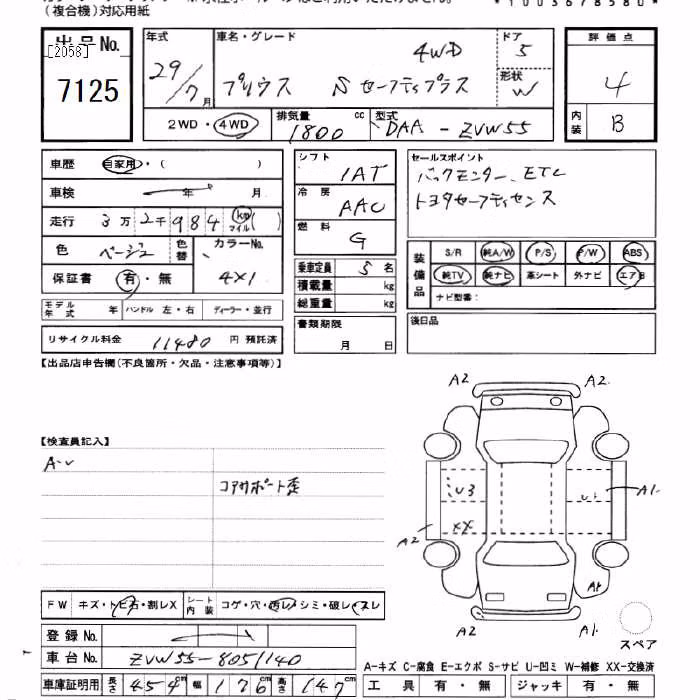 (複合機)対応用紙
*1003678580*
出品No.
[2058]
7125
年式
29/7月
車名・グレード
4WD
プリウス Sセーフティプラス
ドア
5
形状
W
2WD・4WD
排気量
1800 cc
型式
DAA-ZVW55
評価点
4
内装
B
車歴 自家用・( )
車検 年 月
走行 3万2千984 km マイル( )
色 ベージュ 色替
カラーNo.
4X1
保証書 有・無
モデル年式 年 ハンドル 左・右 ディーラー・並行
リサイクル料金 11480 円 預託済
シフト
1AT
冷房
AAC
燃料
G
乗車定員 5名
積載量 kg
総重量 kg
書類期限
月 日
セールスポイント
バックモニター、ETC
トヨタセーフティセンス
装備品
S/R 純A/W P/S P/W ABS
純TV 純ナビ 革シート 外ナビ エアB
ナビ型番:
後日品
【出品店申告欄(不良箇所・欠品・注意事項等)】
【検査員記入】
コアサポート歪
A2 A2
U3
A1
XX
A2
A1
A2 A1
スペア
FW キズ・トビ石・割レX シート内装 コゲ・穴・汚レ・シミ・破レ・スレ
登録No.
車台No. ZVW55-8051140
車庫証明用 長さ 454cm 幅 176cm 高さ 147cm
A-キズ C-腐食 E-エクボ S-サビ U-凹ミ W-補修 XX-交換済
工具 有・無 ジャッキ 有・無